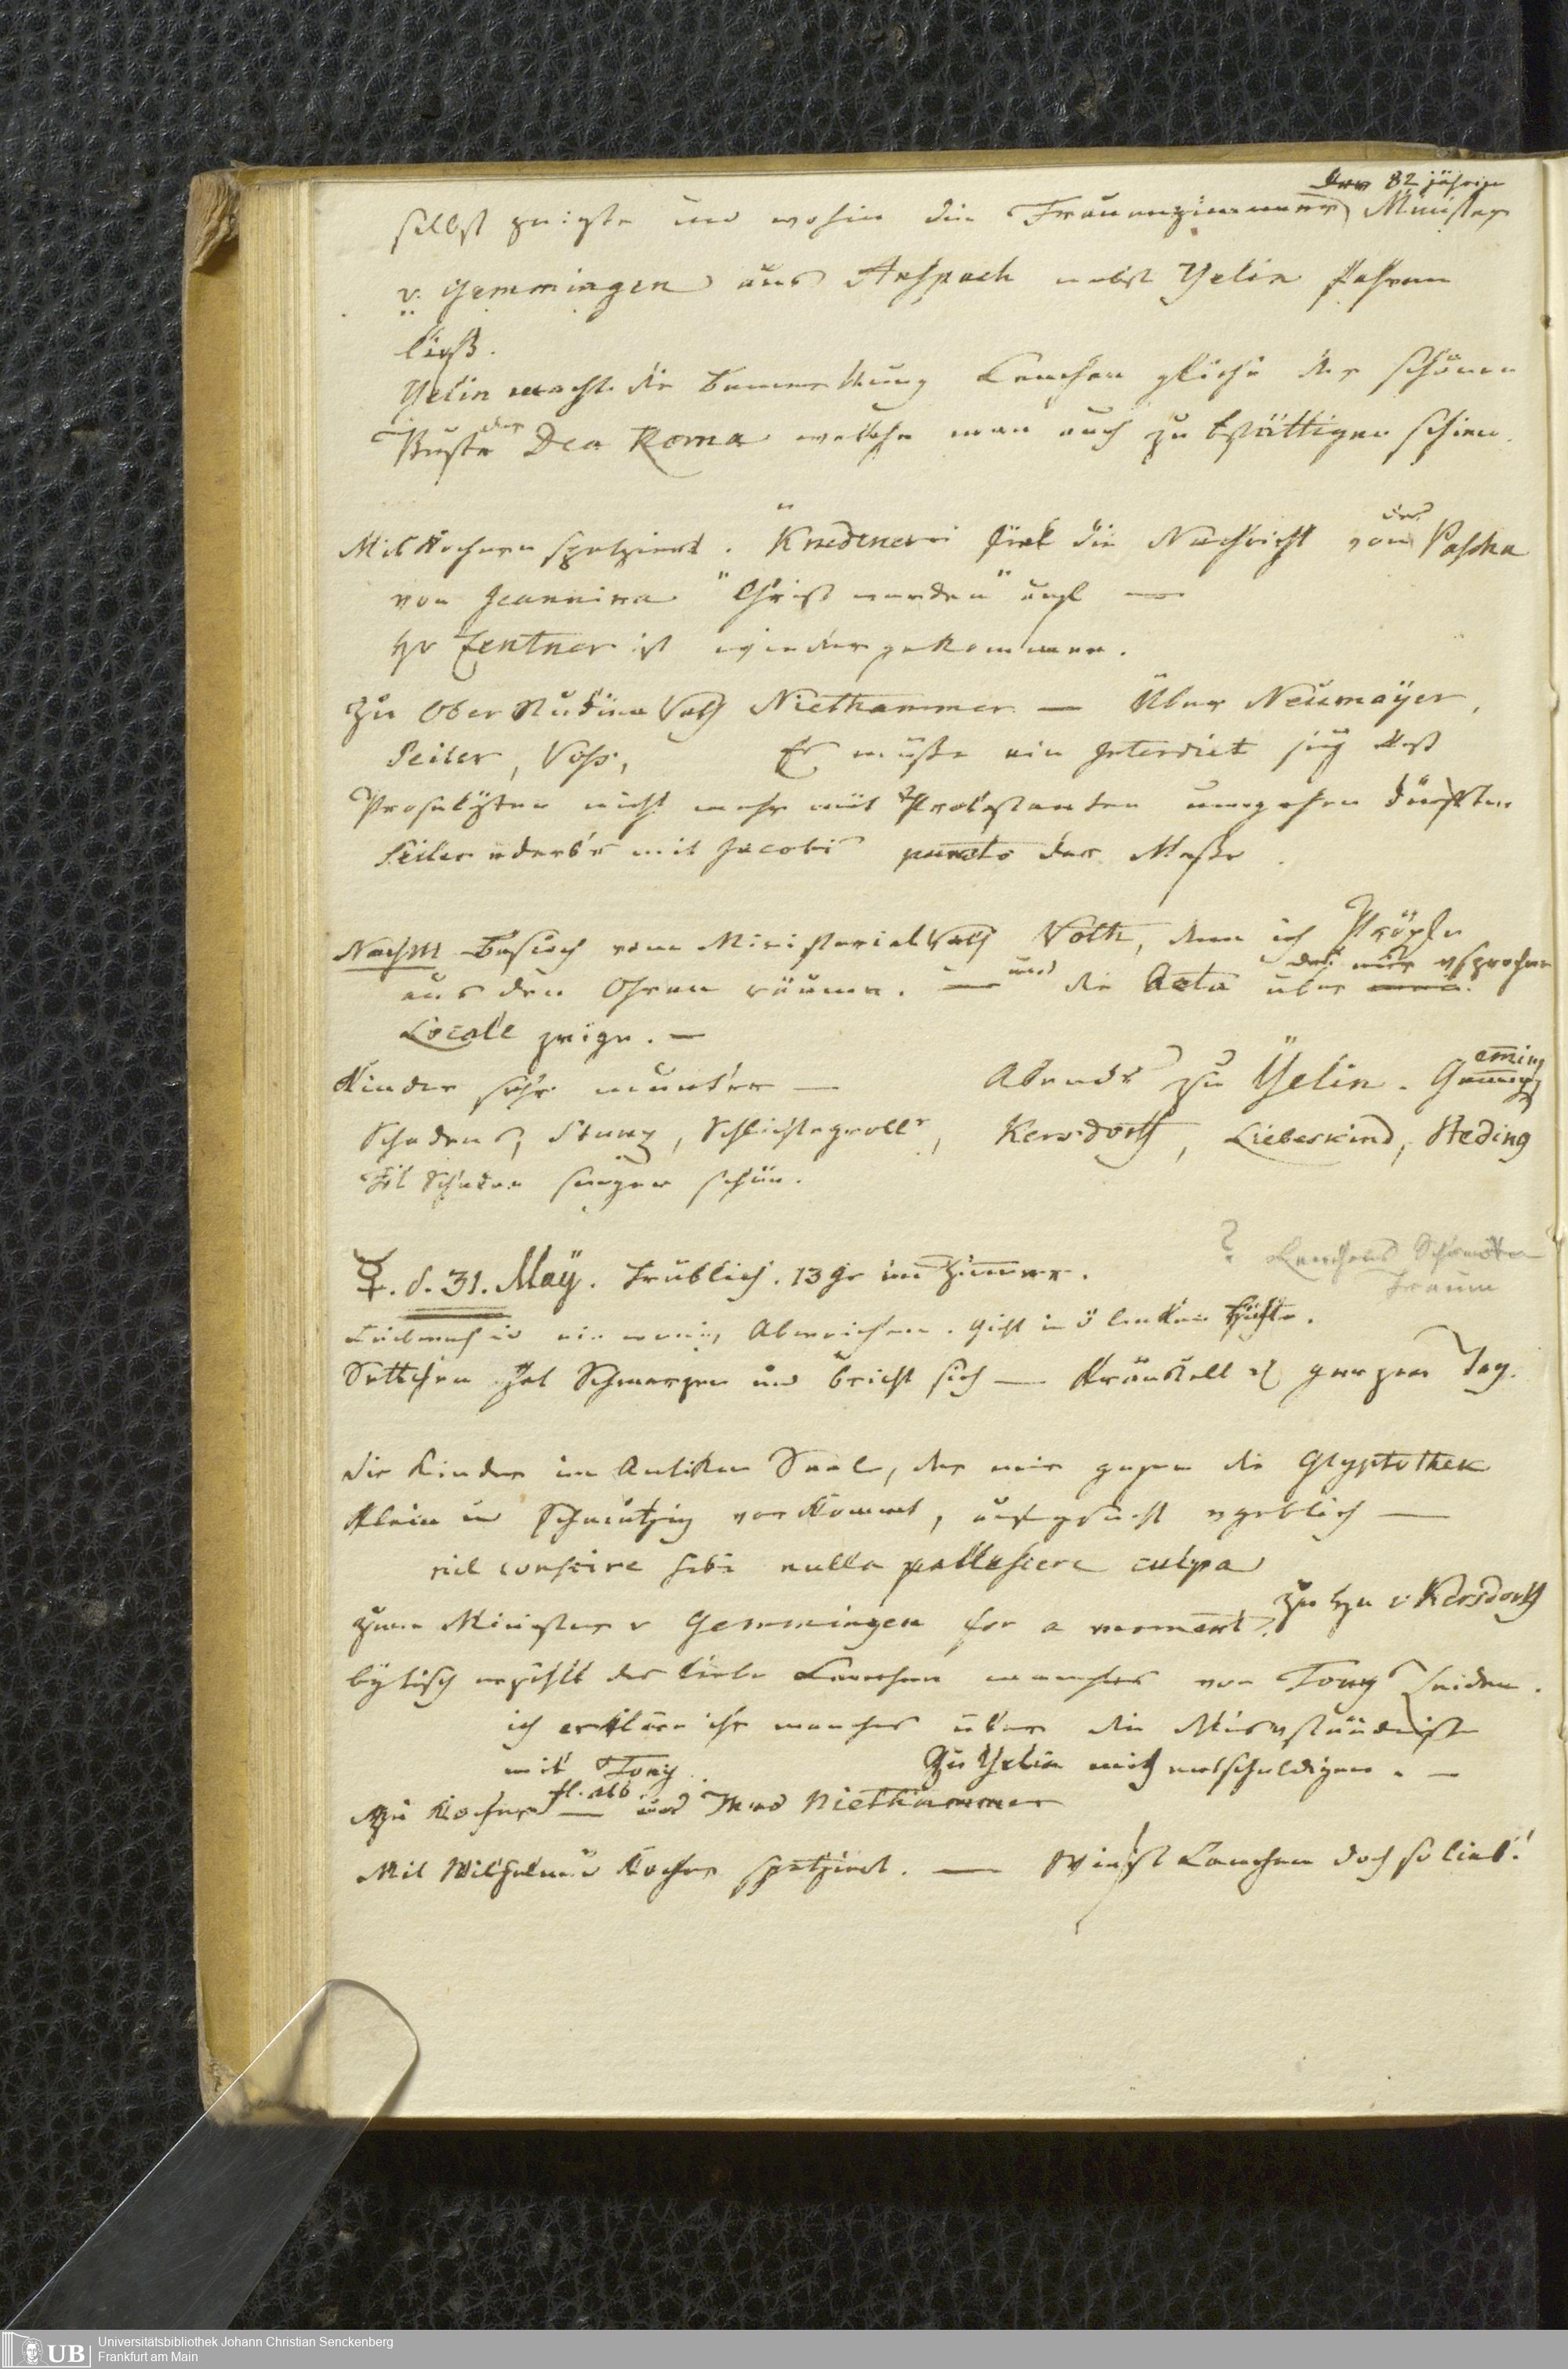 der 82 jährige
selbst zeigte und wohin die Frauenzimmer Minister
v. Gemmingen aus Anspach nebst Yelin fahren
ließ.
Yelin macht die Bemerkung Lenchen gliche der schönen
Büste der Dea Roma welches man auch zu bestättigen schien.
Mit Kochern spatziert. die Nachricht vom Pascha
von Jeannina "Christ werden"
Hr Zentner ist wieder gekommen.
Zu Ober Studien Rath Niethammer — Über Neumayer,
Seiler, Voss, Er müße ein Interdict seyn daß
Proselyten nicht mehr mit Protestanten umgehen dürften
Seiler mit Jacobi puncto der Messe.
Nachm Besuch vom Ministerial Rath Voth, dem ich Pröpfe
aus den Ohren räume. — und die Acta über das mir versprochene
Locale zeige. —
Kinder sehr munter — Abends zu Yelin. Gemming
Schaden, Stunz, Schlichtegroll, Kersdorff, Liebeskind, Steding
Frl Schaden singen schön.
? Lenchens
Traum
♀. d. 31. May. Trüblich. 13 gr im Zimmer.
ein wenig Abweichen. Gicht in d linken Hüfte.
Settchen hat Schmerzen und bricht sich — den ganzen Tag.
Die Kinder im Antiken Saal, der mir gegen die Glyptothek
klein u Schmutzig vorkommt, aufgesucht vgeblich —
nil conscire sibi nulla pallescere culpa
Zum Minister v Gemmingen for a moment. Zu Hrn v Kersdorff
bytisch erzählt das liebe Lenchen manches von Tony Leiden.
ich erkläre ihr manches über die Misverständnisse
mit Tony. Zu Yelin mich entschuldigen. —
Zu Kocher — und Mad Niethammer
Mit Wilhelm u Kocher spatziert. — Wie ist Lenchen doch so lieb!
UB Universitätsbibliothek Johann Christian Senckenberg
Frankfurt am Main